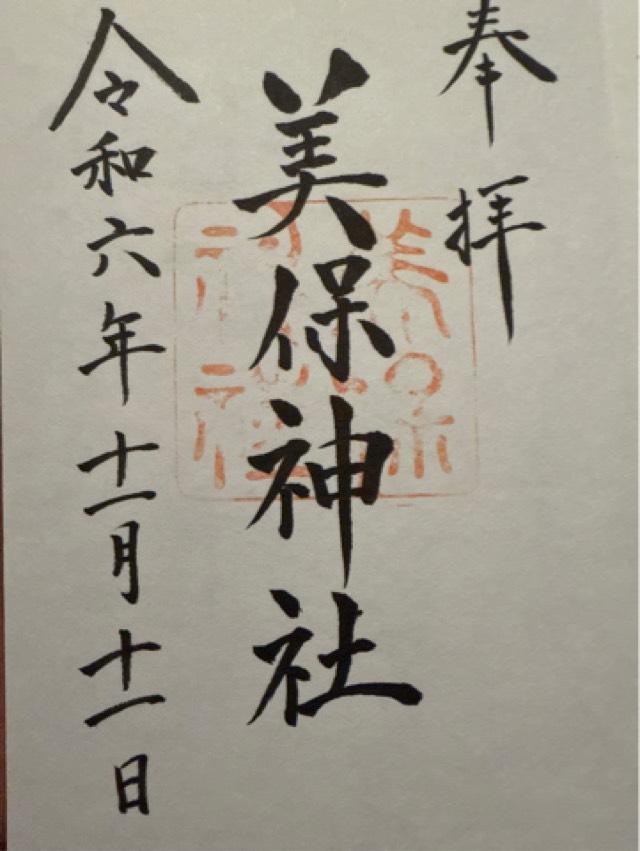 奉拝
美保神社
令和六年十一月十一日